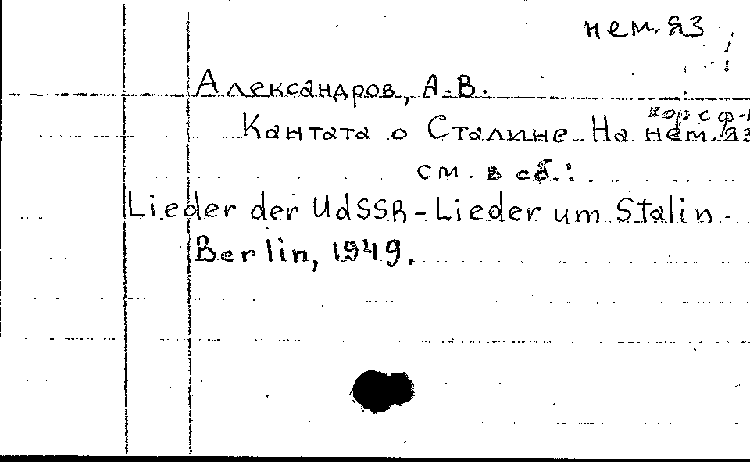 нем. яз
Александров, А.В.
хор с ф-
Кантата о Сталине. На нем. яз
см. в сб.:
Lieder der UdSSR - Lieder um Stalin.
Berlin, 1949.